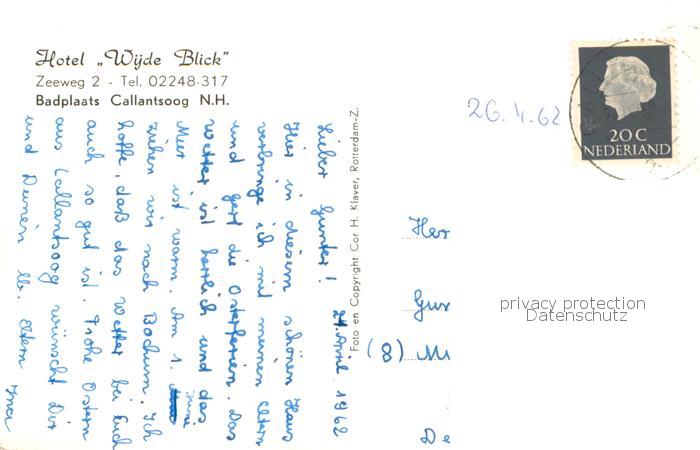 Hotel „Wijde Blick”
Zeeweg 2 - Tel. 02248-317
Badplaats Callantsoog N.H.
21. April 1962
Lieber Gunter!
Hier in diesem schönen Haus
verbringe ich mit meinen Eltern
und Gert die Osterferien. Das
Wetter ist herrlich und das
Meer ist warm. Am 1. Juni
ziehen wir nach Bochum. Ich
hoffe, daß das Wetter bei Euch
auch so gut ist. Frohe Ostern
aus Callantsoog wünscht Dir
und Deinen lb. Eltern Ina
Foto en Copyright Cor H. Klaver, Rotterdam-Z.
26.4.62
20 C
NEDERLAND
Her
Gun
(8) Mü
De
privacy protection
Datenschutz